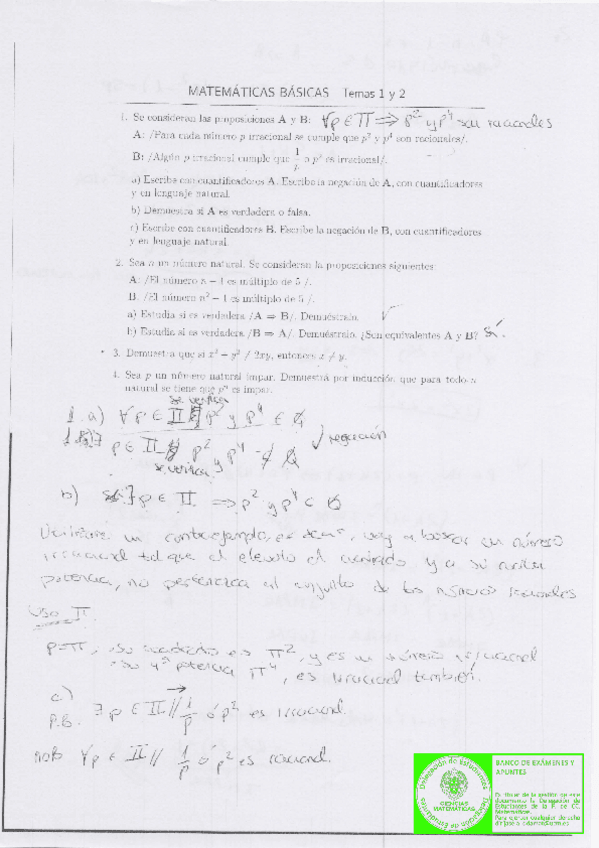 MATEMÁTICAS BÁSICAS Temas 1 y 2
1. Se consideran las proposiciones A y B: ∀p ∈ II ⇒ p² y p⁴ son racionales
A: /Para cada número p irracional se cumple que p² y p⁴ son racionales/.
B: /Algún p irracional cumple que 1/p o p² es irracional/.
a) Escriba con cuantificadores A. Escriba la negación de A, con cuantificadores
y en lenguaje natural.
b) Demuestra si A es verdadera o falsa.
c) Escribe con cuantificadores B. Escribe la negación de B, con cuantificadores
y en lenguaje natural.
2. Sea n un número natural. Se consideran la proposiciones siguientes:
A: /El número n − 1 es múltiplo de 5 /.
B: /El número n² − 1 es múltiplo de 5 /.
a) Estudia si es verdadera /A ⇒ B/. Demuéstralo. √
b) Estudia si es verdadera /B ⇒ A/. Demuéstralo. ¿Son equivalentes A y B? Sí.
3. Demuestra que si x² + y² ≠ 2xy, entonces x ≠ y.
4. Sea p un número natural impar. Demuestra por inducción que para todo n
natural se tiene que pⁿ es impar.
se verifica
1. a) ∀p ∈ II p² y p⁴ ∈ Q
p ∈ II p² y p⁴ ∉ Q √ negación
se verifica
b) ∃ p ∈ II ⇒ p² y p⁴ ⊂ Q
Utilizaré un contraejemplo, es decir, voy a buscar un número
irracional tal que al elevarlo al cuadrado y a su cuarta
potencia, no pertenezca al conjunto de los números racionales
Uso π
p=π, su cuadrado es π², y es un número irracional
su 4ª potencia π⁴, es irracional también.
c)
P.B. ∃ p ∈ II // 1/p ó p² es irracional.
no B ∀p ∈ II // 1/p ó p² es racional.
Delegación de Estudiantes
CIENCIAS
MATEMÁTICAS
BANCO DE EXÁMENES Y
APUNTES